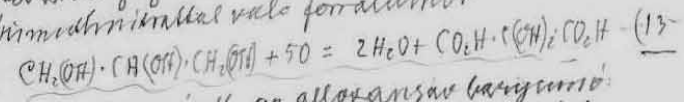 való forralásnál
CH₂(OH)·CH(OH)·CH₂(OH) + 5O = 2H₂O + CO₂H·C(OH)₂·CO₂H – (13
alloxánsav baryumsó